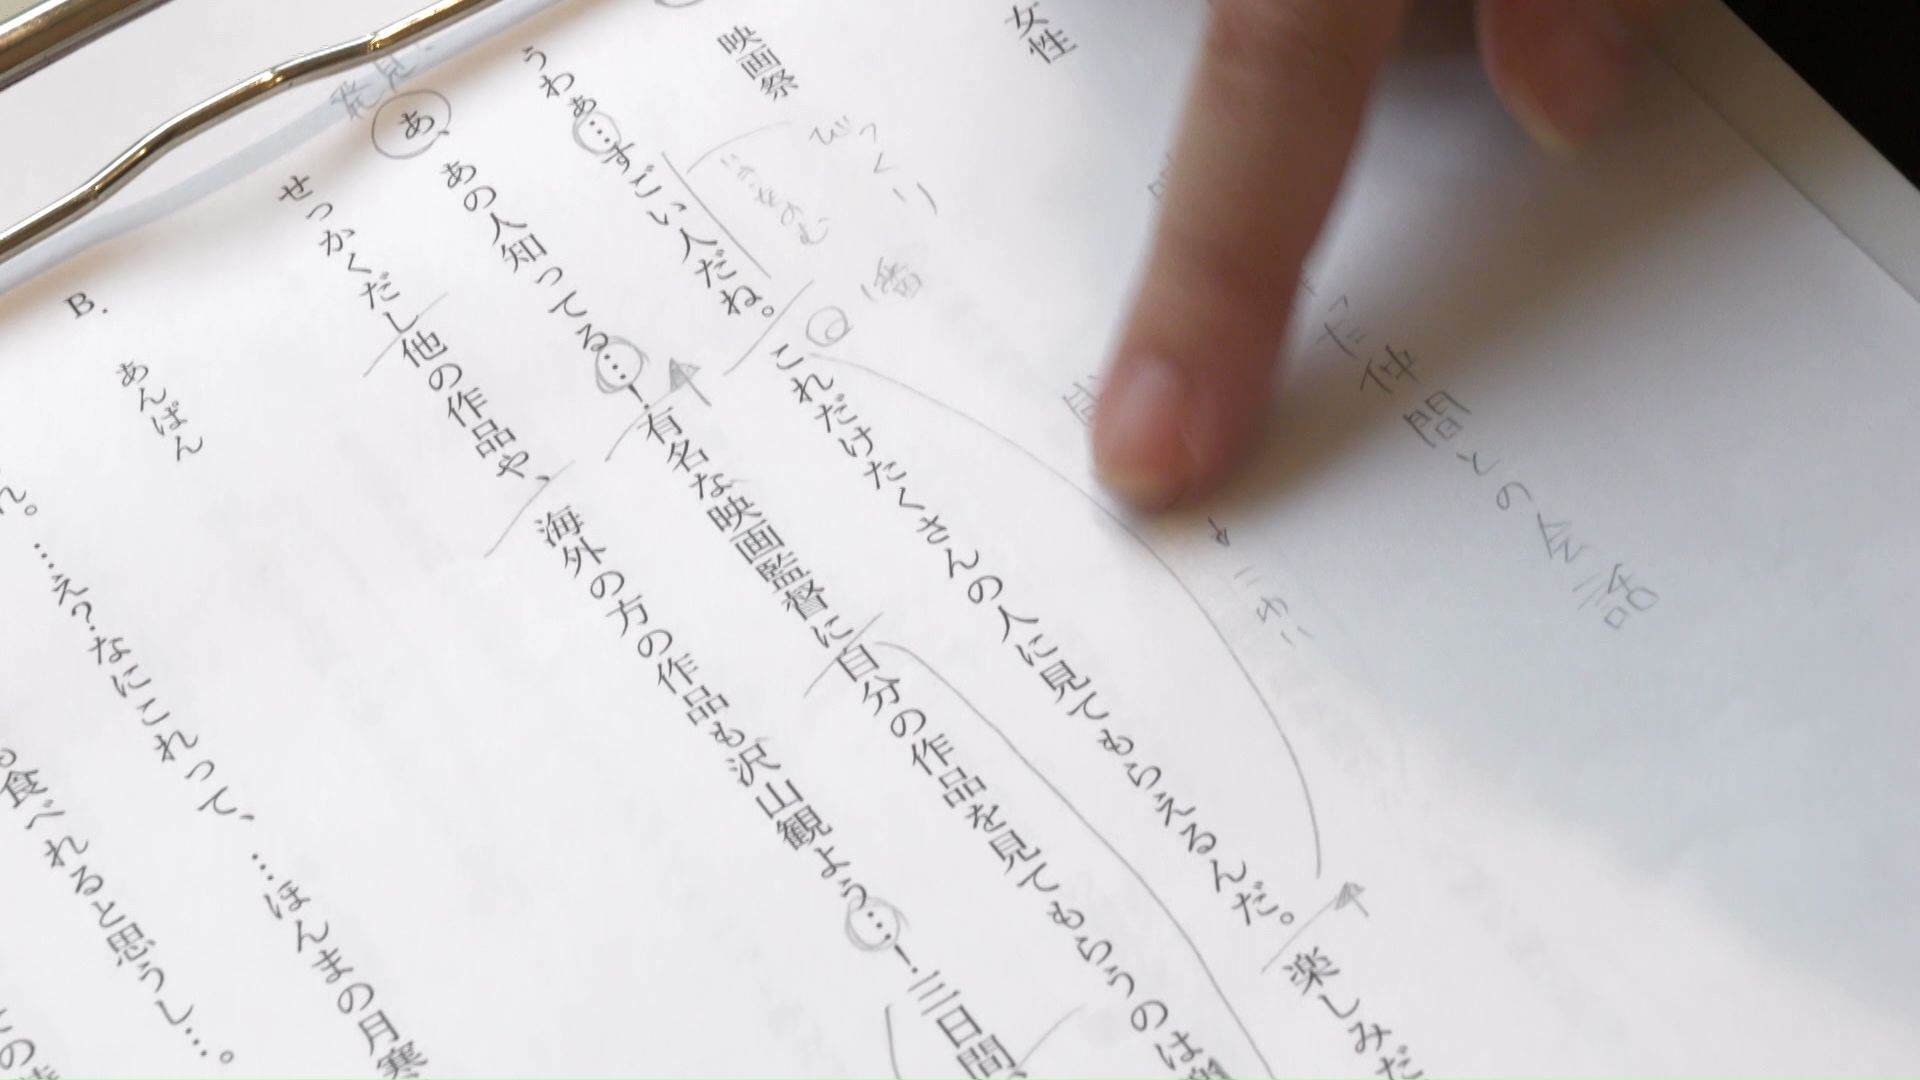 女性
仲間との会話
映画祭
びっくり
1番
うわぁ…すごい人だね。これだけたくさんの人に見てもらえるんだ。楽しみだ
発見
あ、あの人知ってる…!有名な映画監督に自分の作品を見てもらうのは
せっかくだし他の作品や、海外の方の作品も沢山観よう…!三日間、
B.
あんぱん
…え?なにこれって、…ほんまの月寒
食べれると思うし…。